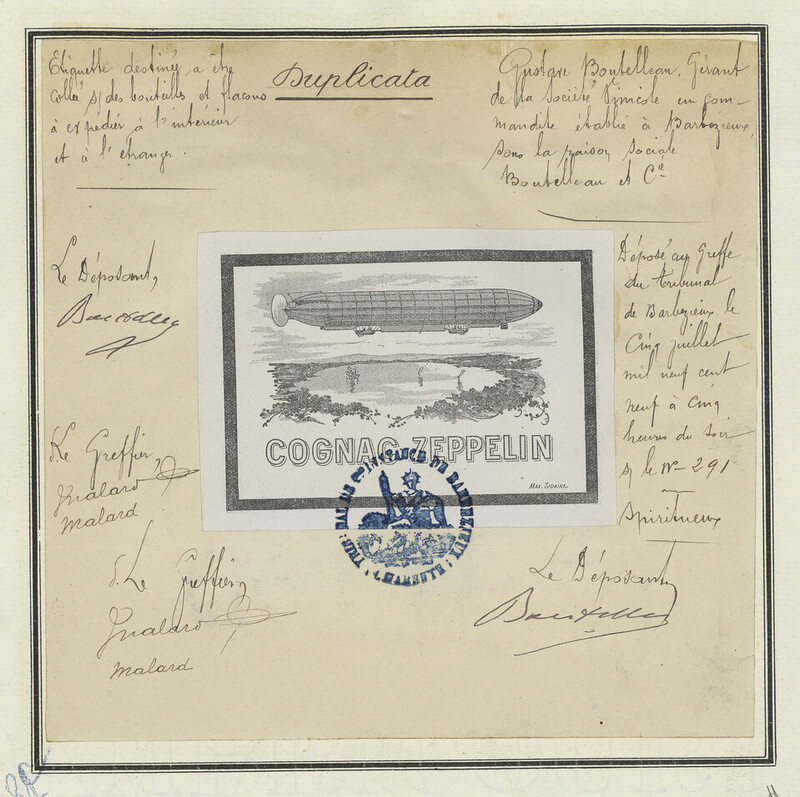 Duplicata
Etiquette destinée a être
collée s/ des bouteilles et flacons
à expédier à l'intérieur
et à l'étranger.
Gustave Boutelleau, Gérant
de la Société Vinicole en com-
mandite établie à Barbezieux,
sous la raison sociale
Boutelleau et Cie
Le Déposant,
Boutelleau
Le Greffier,
Malard
Malard
COGNAC ZEPPELIN
Max. Sidaine.
TRIBUNAL DE 1re INSTANCE DE BARBEZIEUX
CHARENTE
Déposé au Greffe
du tribunal
de Barbezieux le
Cinq juillet
mil neuf cent
neuf à cinq
heures du soir
s/ le No 291
Spiritueux
Le Greffier,
Malard
Malard
Le Déposant
Boutelleau